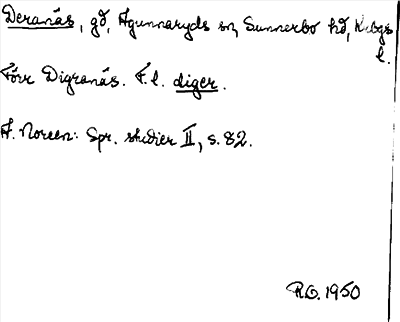 Deranäs, gd, Agunnaryds sn, Sunnerbo hd, Krbgs
l.
Förr Digranäs. F. l. diger.
A. Noreen: Spr. studier II, s. 82.
R.O. 1950